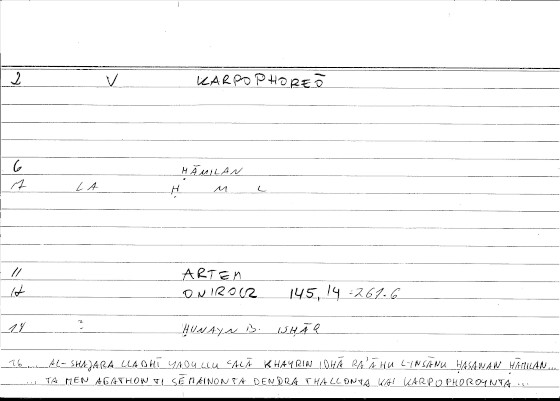 2 V KARPOPHOREŌ
6 ḤĀMILAN
17 LA Ḥ M L
11 ARTEM
12 ONIROCR 145, 14 = 261.6
14 ? ḤUNAYN B. ISḤĀQ
16 ... AL-SHAJARA LLADHĪ YADULLU ʿALĀ KHAYRIN IDHĀ RA'ĀHU L-INSĀNU ḤASANAN ḤĀMILAN...
... TA MEN AGATHON TI SĒMAINONTA DENDRA THALLONTA KAI KARPOPHOROYNTA ...